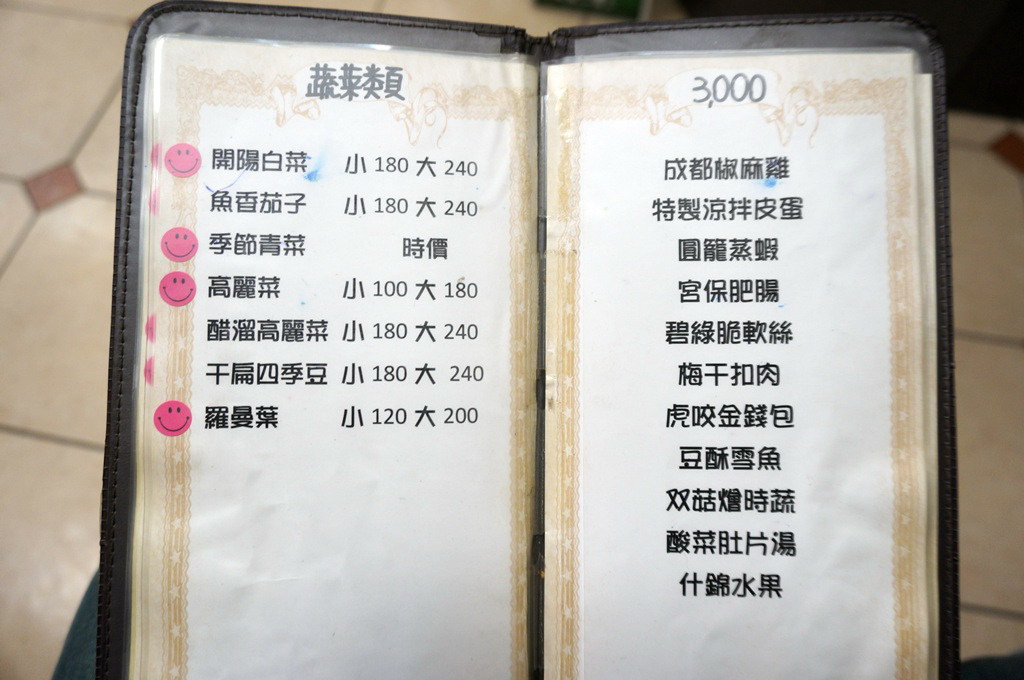 蔬菜類
開陽白菜 小 180 大 240
魚香茄子 小 180 大 240
季節青菜 時價
高麗菜 小 100 大 180
醋溜高麗菜 小 180 大 240
干扁四季豆 小 180 大 240
羅曼葉 小 120 大 200
3,000
成都椒麻雞
特製涼拌皮蛋
圓籠蒸蝦
宮保肥腸
碧綠脆軟絲
梅干扣肉
虎咬金錢包
豆酥雪魚
双菇燴時蔬
酸菜肚片湯
什錦水果